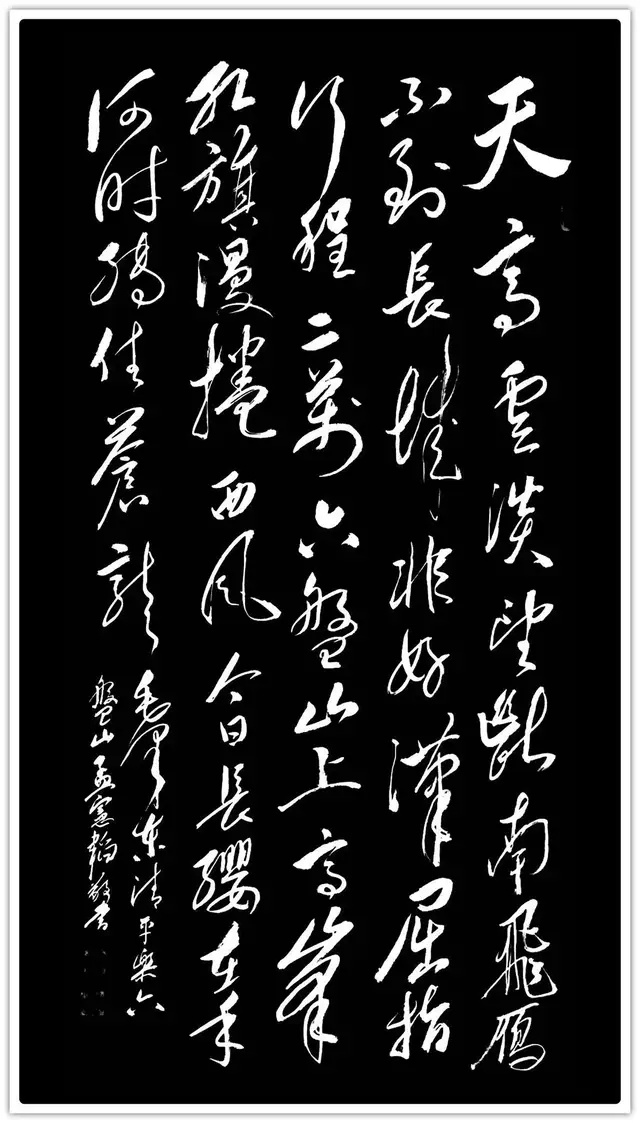 天高雲淡望斷南飛雁
不到長城非好漢屈指
行程二萬六盤山上高峯
紅旗漫捲西風今日長纓在手
何時縛住蒼龍
毛澤東清平樂六
盤山孟憲韜敬書